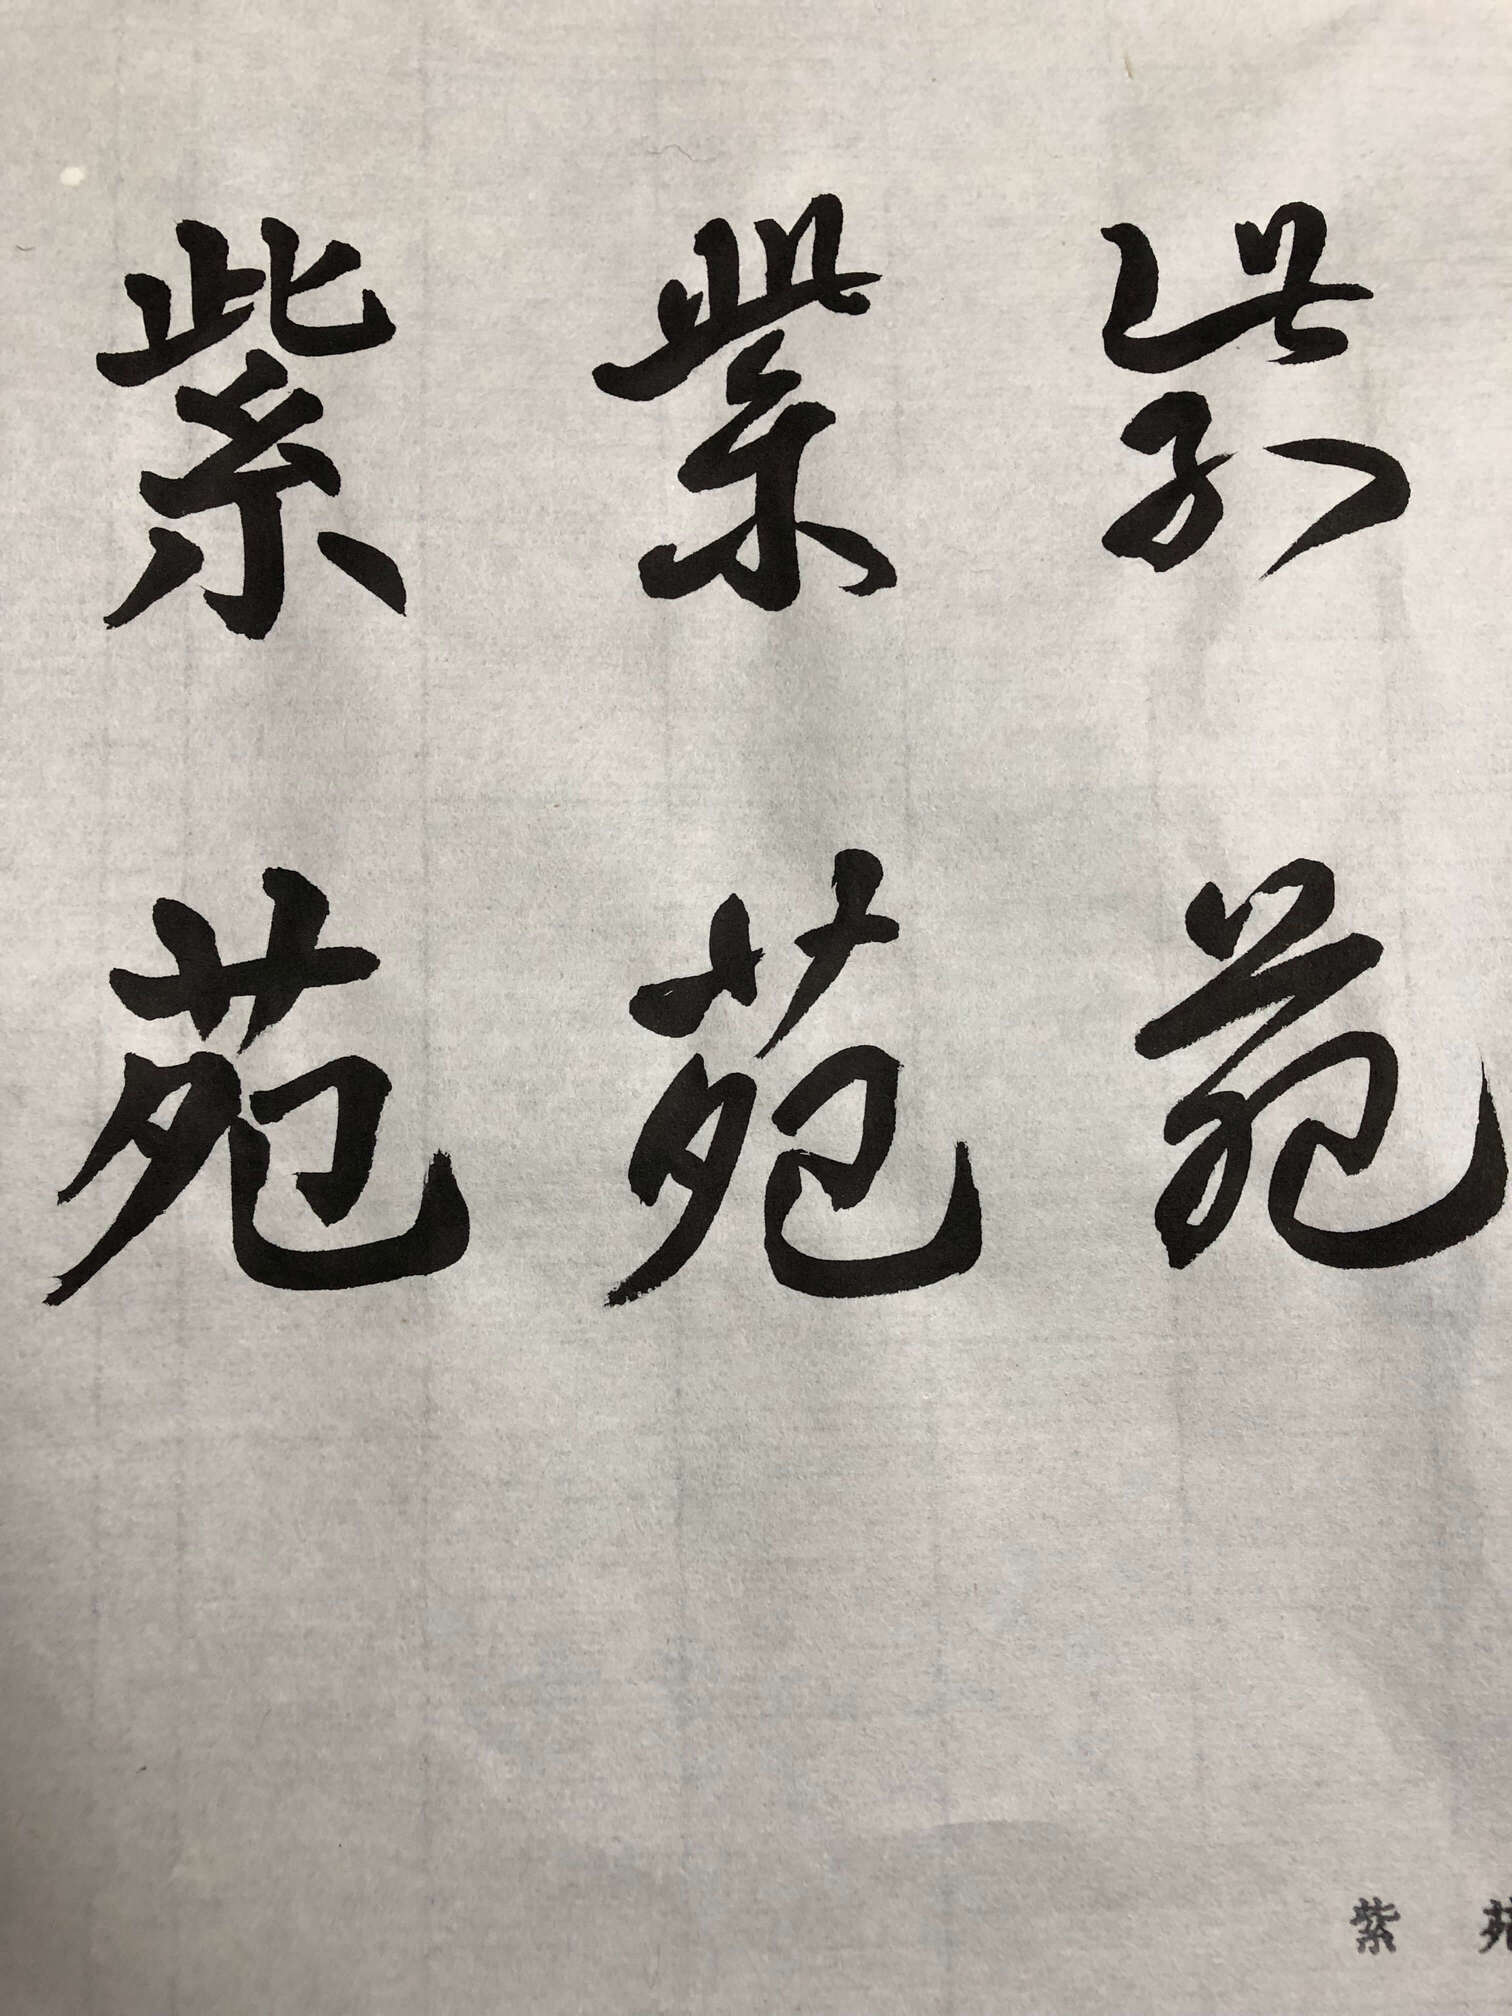 紫 紫 紫
苑 苑 苑
紫 苑